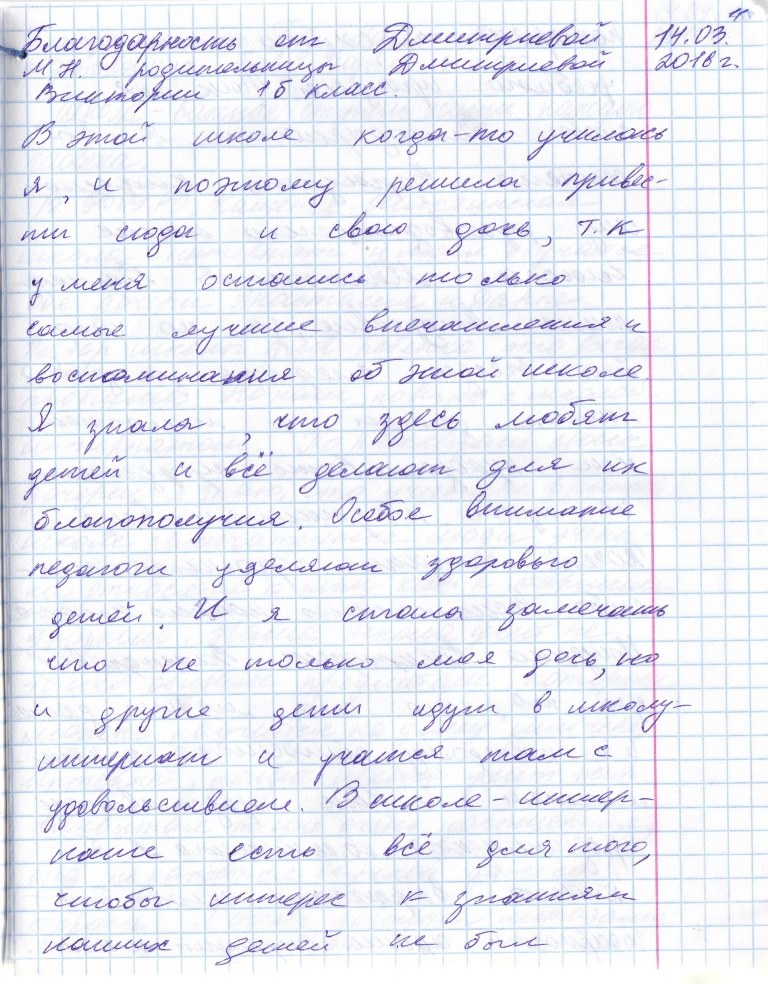 Благодарность от Дмитриевой 14.03.
М.Н. родительницы Дмитриевой 2018 г.
Виктории 1б класс.
В этой школе когда-то училась
я, и поэтому решила привес-
ти сюда и свою дочь, т.к
у меня остались только
самые лучшие впечатления и
воспоминания об этой школе.
Я знала, что здесь любят
детей и всё делают для их
благополучия. Особое внимание
педагоги уделяют здоровью
детей. И я стала замечать
что не только моя дочь, но
и другие дети идут в школу-
интернат и учатся там с
удовольствием. В школе-интер-
нате есть всё для того,
чтобы интерес к знаниям
наших детей не был